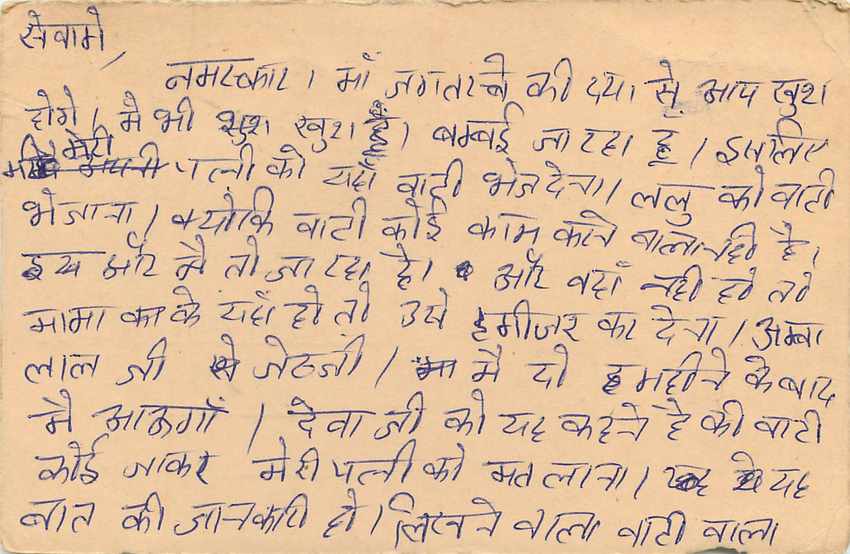 सेवामे,
नमस्कार। माँ जगतम्बे की दया से आप खुश
होगे। मै भी खुश हूँ। बम्बई जा रहा हू। इसलिए
मेरी पत्नी को यहाँ वाटी भेज देना। ललु को वाटी
भेजाना। क्योकि वाटी कोई काम करने वाला नही है।
इस और मै तो जा रहा है। और वहाँ नही हो तो
मामा के यहाँ हो तो उसे हमीजर कर देना। अम्बा
लाल जी से जेठजी। मै दो महीने के बाद
मै आऊगाँ। देवा जी को यह कहने है की वाटी
कोई जाकर मेरी पत्नी को मत लाना। यह
बात की जानकारी हो। लिखने वाला वाटी वाला